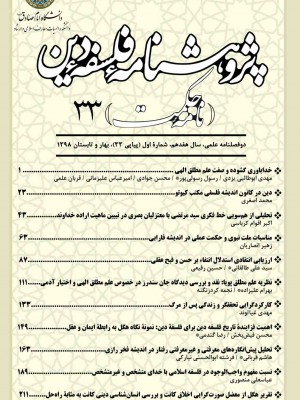 دانشگاه امام صادق
پژوهشنامه فلسفه دین
(نامه حکمت)
۳۳
دوفصلنامه علمی، سال هفدهم، شماره اول (پیاپی ۳۳)، بهار و تابستان ۱۳۹۸
خداباوری گشوده و صفت علم مطلق الهی ۱
مهدی ابوطالبی یزدی / رسول رسولی‌پور / محسن جوادی / امیرعباس علیزمانی / قربان علمی
دین در کانون اندیشه فلسفی مکتب کیوتو ۲۳
محمد اصغری
تحلیلی از هم‌سویی خط فکری سید مرتضی با معتزلیان بصری در تبیین ماهیت اراده خداوند ۴۳
اکبر اقوام کرباسی
مناسبات ملت نبوی و حکمت عملی در اندیشه فارابی ۶۳
زهیر انصاریان
ارزیابی انتقادی استدلال انتفاء بر حسن و قبح عقلی ۸۷
سید علی طالقانی / حسین رفیعی
نظریه علم مطلق پویا: نقد و بررسی دیدگاه جان سندرز در خصوص علم مطلق الهی و اختیار آدمی ۱۱۱
بهرام علیزاده / نجمه کردزنگنه
کارکردگرایی تحققگر و زندگی پس از مرگ ۱۳۳
مهدی غیاثوند
اهمیت فزایندهٔ تاریخ فلسفه دین برای فلسفه دین: نمونه نگاه هگل به رابطهٔ ایمان و عقل ۱۴۹
محسن فیض‌بخش / رضا گندمی
تحلیل پیش‌انگاره‌های معرفتی و غیرمعرفتی رفتار در اندیشه فخر رازی ۱۶۳
هاشم قربانی / فرشته ابوالحسنی نیارکی
نسبت مفهوم واجب‌الوجود در فلسفه اسلامی با خدای متشخص و غیرمتشخص ۱۸۹
عباسعلی منصوری
تقریر هگل از معضل صورت‌گرایی اخلاق کانت و بررسی انسان‌شناسی دینی کانت به مثابهٔ راه‌حل ۲۱۱